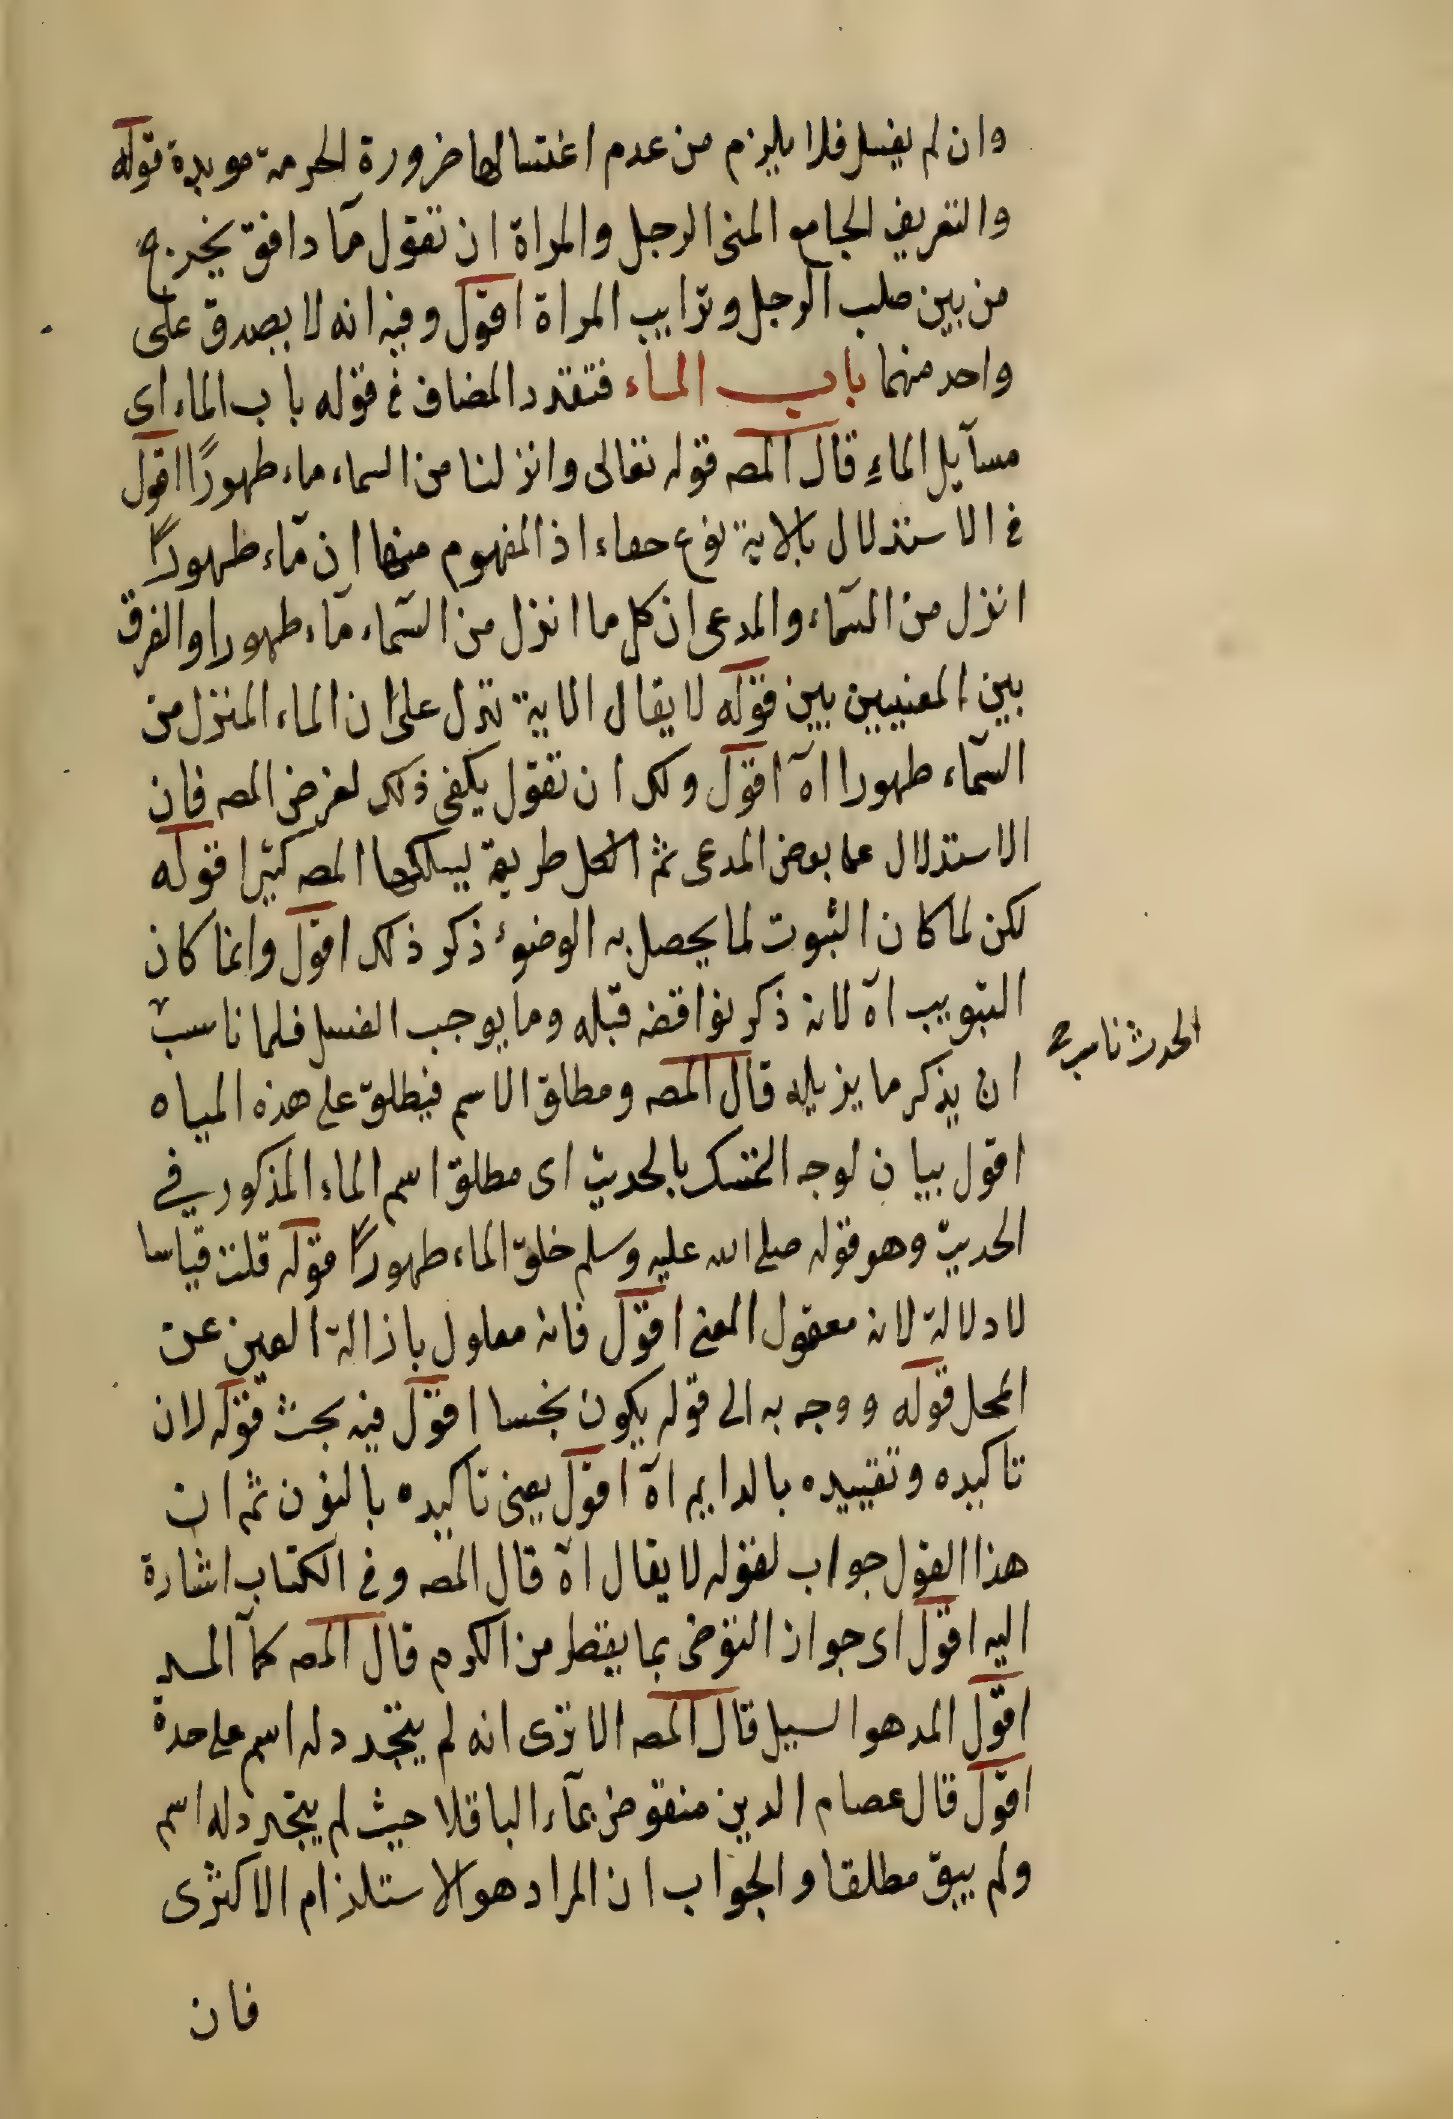 وان لم يغسل فلا يلزم من عدم اغتسالها ضرورة الحرمة مويدة قوله
والتعريف الجامع المنى الرجل والمراة ان تقول مآ دافق يخرج
من بين صلب الرجل وترايب المراة اقول وفيه انه لا يصدق على
واحد منهما باب الماء فتقدر المضاف فى قوله باب الماء اى
مسآيل الماء قال المصه قوله تعالى وانزلنا من السماء ماء طهورًا اقول
فى الاستدلال بالاية نوع خفاء اذ المفهوم منها ان مآء طهورًا
انزل من السمآء والمدعى ان كل ما انزل من السمآء مآء طهورا والفرق
بين المعنيين بين قوله لا يقال الاية تدل على ان الماء المنزل من
السمآء طهورا اه اقول ولك ان تقول يكفى ذلك لغرض المصه فان
الاستدلال بعض المدعى ثم الكل طريقة يسلكها المصه كثيرا قوله
لكن لما كان الثبوت لما يحصل به الوضوء ذكر ذلك اقول وانما كان
التبويب اه لانه ذكر نواقضه قبله وما يوجب الغسل فلما ناسب
الحدث ناسب
ان يذكر ما يزيله قال المصه ومطلق الاسم فيطلق على هذه المياه
اقول بيان لوجه التمسك بالحديث اى مطلق اسم الماء المذكور في
الحديث وهو قوله صلى الله عليه وسلم خلق الماء طهورًا قوله قلت قياسا
لا دلالة لانه معقول المعنى اقول فانه معلول باذالة العين عن
المحل قوله ووجه به الى قوله يكون نجسا اقول فيه بحث قوله لان
تاكيده وتقييده بالدايم اه اقول يعنى تاكيده بالنون ثم ان
هذا القول جواب لقوله لا يقال اه قال المصه وفى الكتاب اشارة
اليه اقول اى جواز التوضى بما يقطر من الكرم قال المصه كمآ المد
اقول المد هو السيل قال المصه الا ترى انه لم يتجدد له اسم على حدة
اقول قال عصام الدين منقوض بمآء الباقلا حيث لم يتجدد له اسم
ولم يبق مطلقا والجواب ان المراد هو الاستلزام الاكثرى
فان